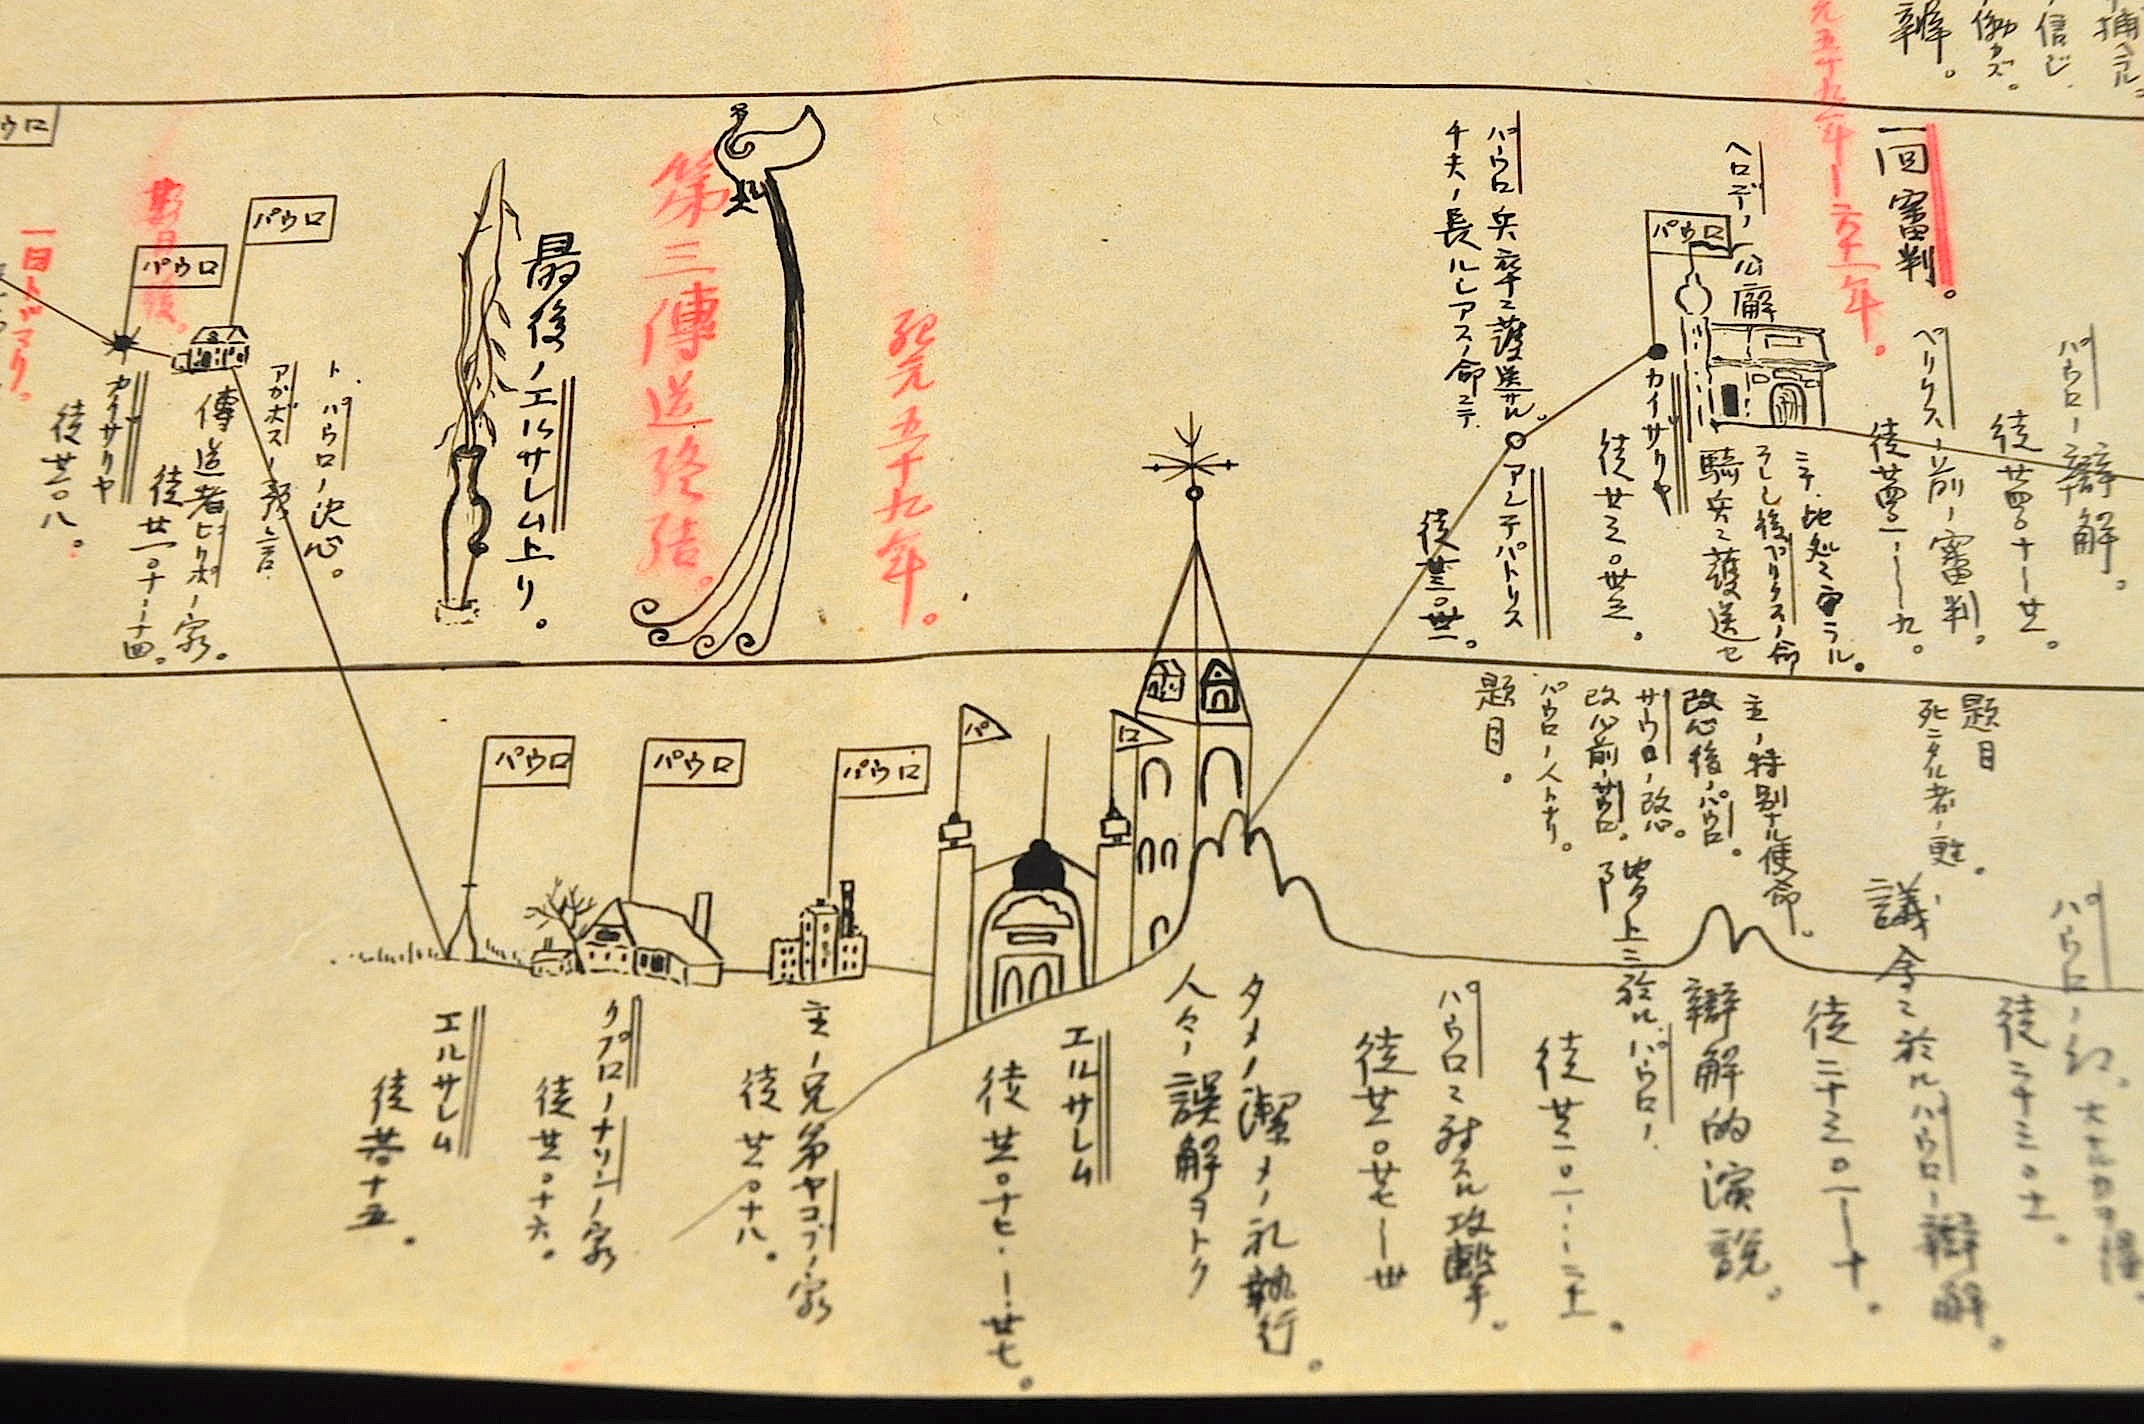 パウロ
パウロ
パウロ
一日トドマリ。
カイザリヤ
徒廿一〇八。
傳道者ピリポノ家。
徒廿一〇十―十四。
アガボスノ預言
ト、パウロノ決心。
最後ノエルサレム上リ。
第三傳道終結。
紀元五十九年。
パウロ兵卒ニ護送サル。
千夫ノ長ルシアスノ命ニテ
アンテパトリス
徒廿三〇卅一。
パウロ
ヘロデノ公廨
カイザリヤ
徒廿三〇卅三。
騎兵ニ護送セ
ラレシ後ペリクスノ命
ニテ、此処ニ守ラル。
一回審判。
紀元五十九年―六十一年。
ペリクスノ前ノ審判。
徒廿四〇一―九。
パウロノ辯解。
徒廿四〇十―廿一。
パウロ
パウロ
パウロ
パ
ロ
エルサレム
徒廿一〇十五。
クプロノナソンノ家
徒廿一〇十六。
主ノ兄弟ヤコブノ家
徒廿一〇十八。
エルサレム
徒廿一〇十七.―.廿七。
人々ノ誤解ヲトク
タメノ潔メノ礼執行。
パウロニ対スル攻撃。
徒廿一〇廿七―卅
題目。
パウロノ人トナリ。
改心前ノサウロ。
サウロノ改心。
改心後ノパウロ。
主ノ特別ナル使命。
階上ニ於ル、パウロノ
辯解的演説。
徒二十三〇一―十。
題目
死ニタル者ノ甦。
議会ニ於ルパウロノ辯解。
徒二十三〇十一。